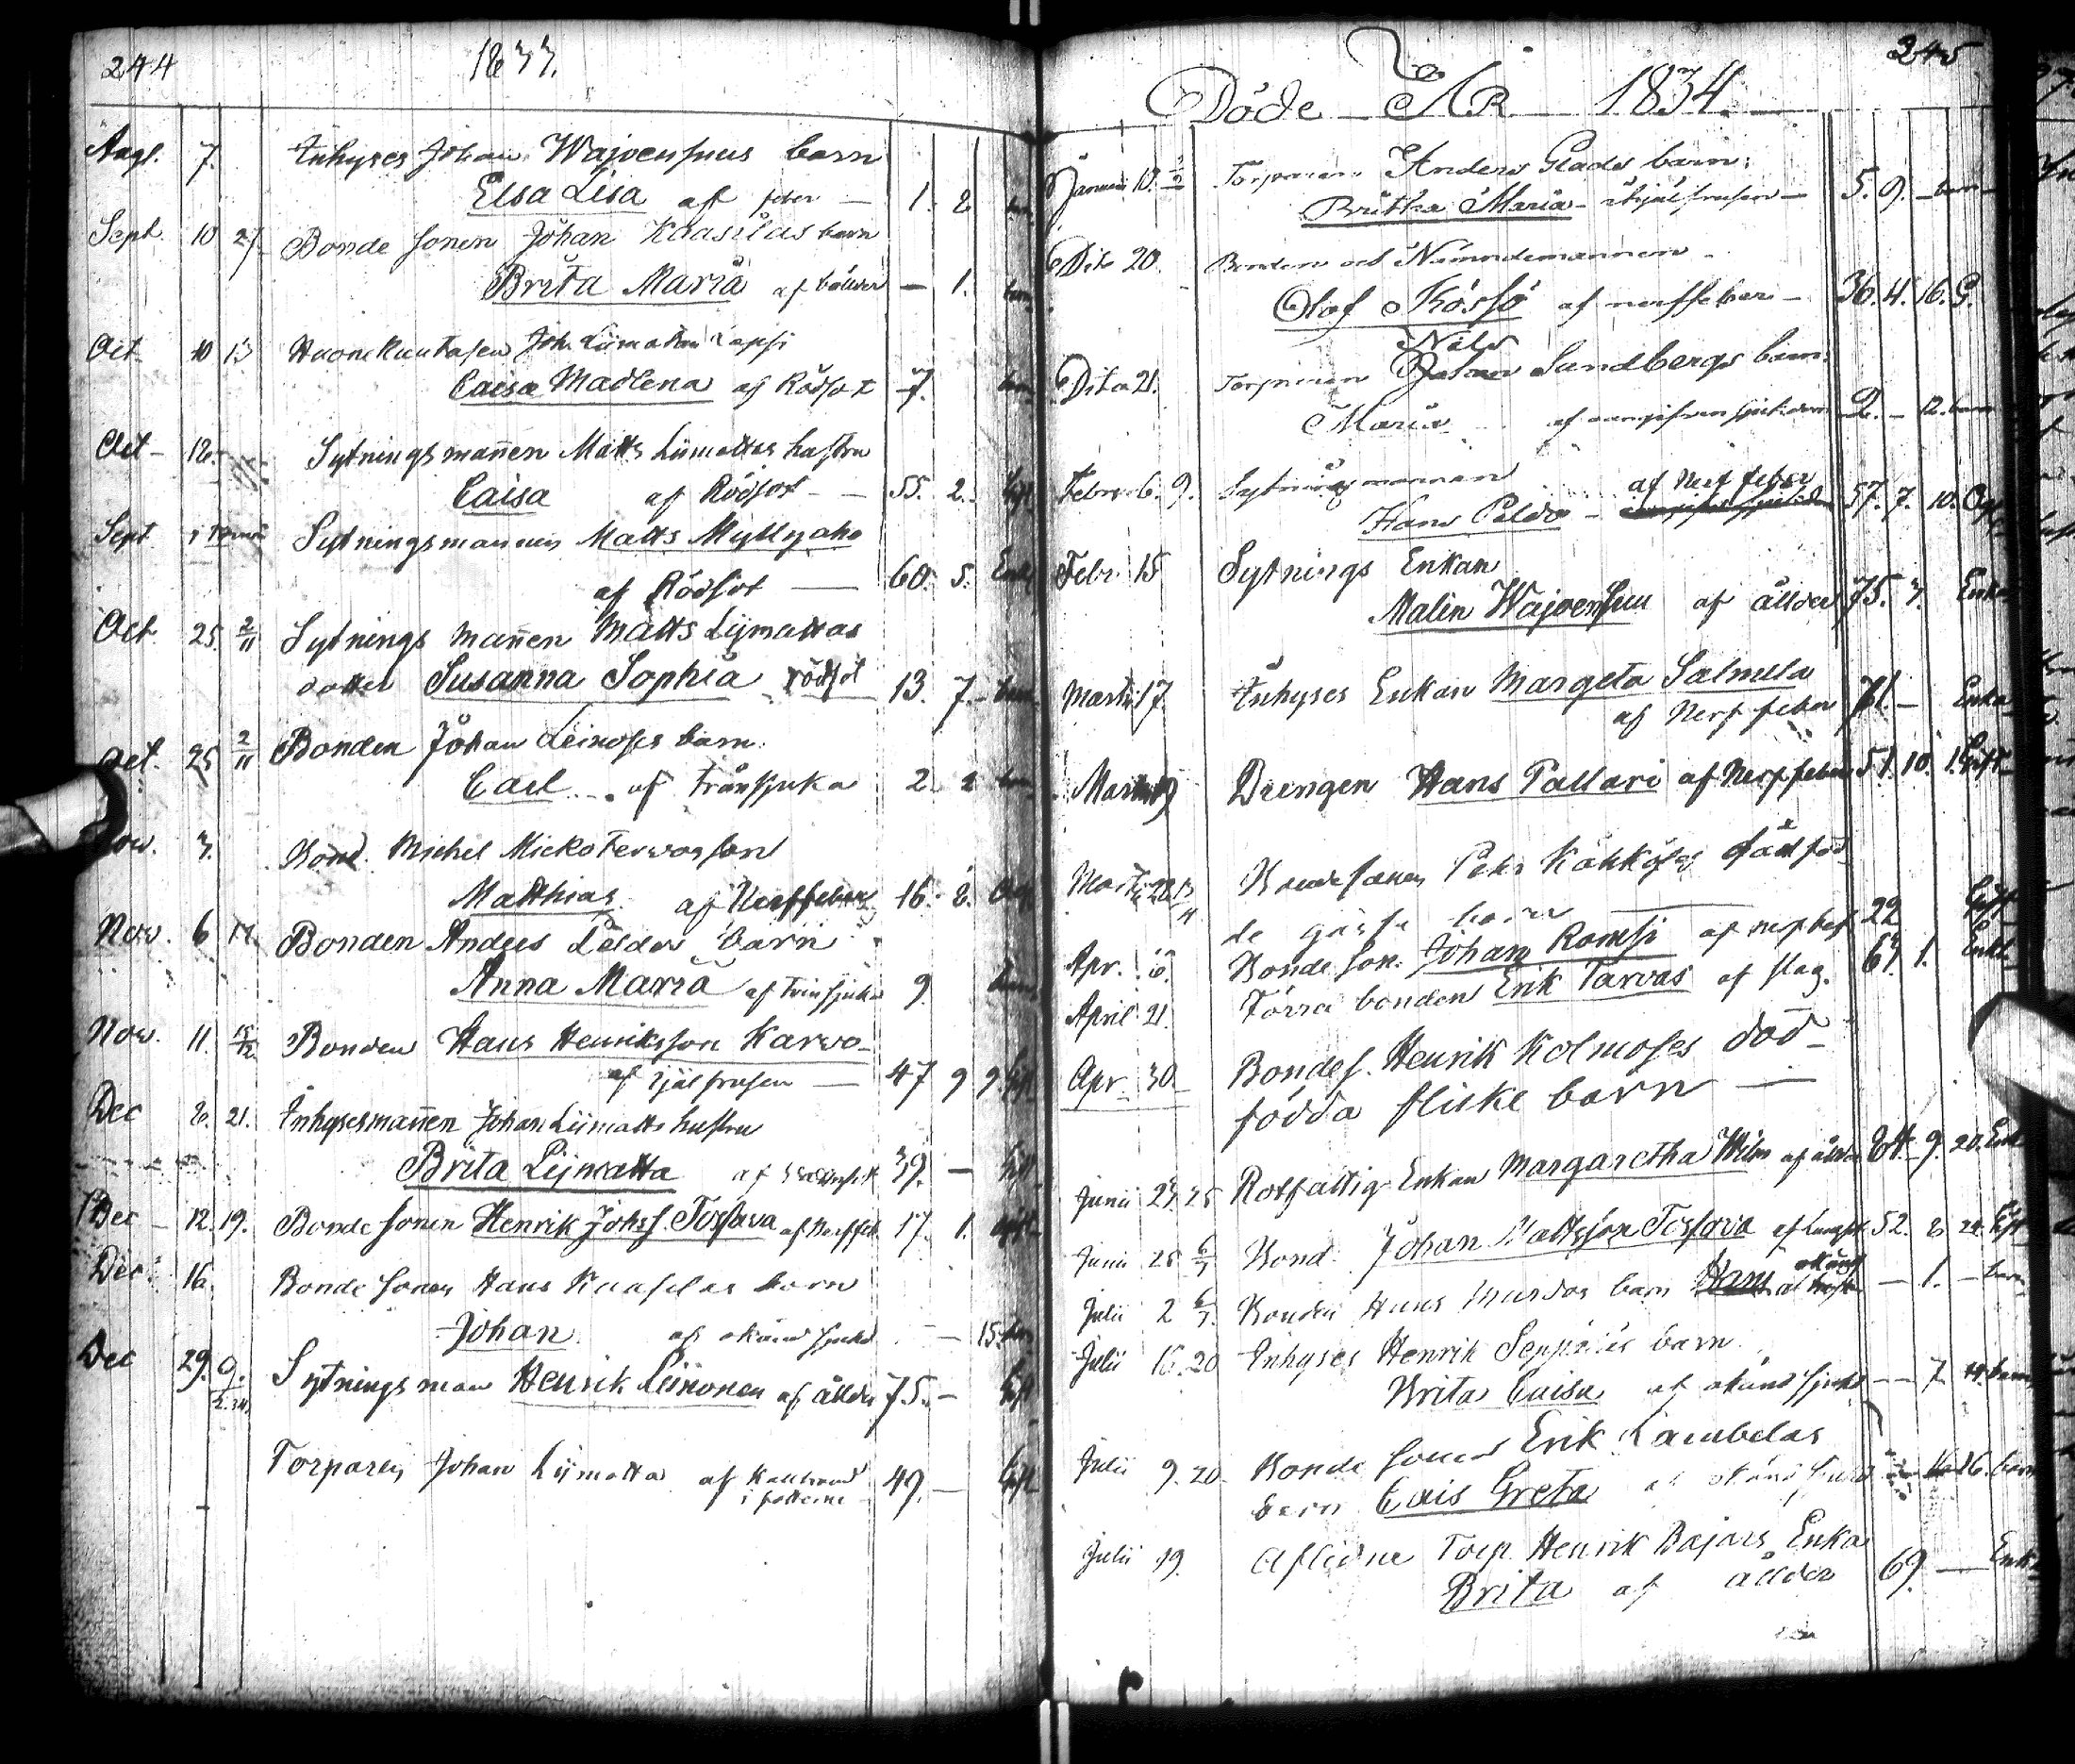 244 1833.
Aug. 7. Inhyses Johan Wajvensuus barn
Elsa Lisa af feber — 1. 2 barn
Sept. 10 27. Bonde sonen Johan Kaasilas barn
Brita Maria af bållder — 1. barn
Oct. 10 13 Huonekuntasen Joh. Liimatan Lapsi
Caisa Madlena af Rödsot 7. barn
Oct — 12. Sytningsmannen Matts Liimattas hustru
Caisa af Rödsot — 55. 2. Gift
Sept Sytningsmannen Matts Myllyaho
af Rödsot — 60. 5. Enkl
Oct. 25. 2/11 Sytnings mannen Matts Lijmattas
dotter Susanna Sophia rödsot 13. 7. barn
Oct. 25 2/11 Bonden Johan Leinoses barn
Carl af tränsjuka 2. 2 barn
Now. 3. Bond. Michel Mickotervos son
Matthias af Nerffeber 16. 2. Ogift
Now. 6 17. Bonden Anders Peldos barn
Anna Maria af trinsjuka 9. barn
Now. 11. 15/12 Bonden Hans Henriksson Karvo
af ihjälfrusen — 47 9 9 Gift
Dec 8. 21. Inhysesmannen Johan Liimatts hustru
Brita Lijmatta af 39. — Gift
Dec — 12. 19. Bonde sonen Henrik Johss. Tossava af Nerffeb 17. 1. ogift
Dec. 16. Bonde sonen Hans Kaaselas barn
Johan af okänd sjukd — 15. barn
Dec 29. 9. Sytningsman Henrik Leinonen af ållder 75. — Gift
2.34.
Torparen Johan Lijmatta af Kallbrand 49. — Gift
i fötterne
245
Döde År 1834.
Januari 10. Torparen Anders Glads barn
Britha Maria ihjälfrusen — 5. 9. — barn
Dito 20. Bonden och Nämndemannen
Olof Kössö af nerffeber — 36. 4. 16. G.
Nils
Dito 21. Torparen Johan Sundbergs barn
Maria af 2. — 12. barn
Febru. 6. 9. Sytningsmannen af Nerffeber
Hans Peldo — 57. 7. 10. Ogift
Febr. 15 Sytnings Enkan
Malin Wajvensuu af ållder 75. 3. Enka
Martii 17 Inhyses Enkan Margeta Salmela
af Nerffeber 71 — Enka
Martii 19 Drengen Hans Pallari af Nerffeber 51. 10. 1. Gift
Martii 28 13/4 Bondesonen Pehr Kähköses dödföd
de gosse barn —
Apr. 6. Bonde son. Johan Romsi af nerfbef 22 Gift
April 21. Förra bonden Erik Tarvas af slag. 67. 1. Enkl.
Apr. 30 Bondes. Henrik Kolmoses död
födda flicke barn —
Junii 23 25 Rotfattig Enkan Margaretha Wilm af ållder 84. 9. 20. Enk
Junii 28 6/7 Bond. Johan Mattsson Tossava af lungsot 52. 8 24. Gift
okänd
Julii 2 6/7 Bonden Hans Murdos barn Hans af hosta — 1. — barn
Julii 16. 20 Inhyses Henrik Seppäläs barn
Brita Caisa af okänd sjukd — 7. 14. barn
Julii 9. 20 Bonde sonen Erik Lambelas
barn Cais Greta af okänd sjukd 16. barn
Julii 19. Aflidne Torp. Henrik Pajars Enka
Brita af ållder 69. — Enk.